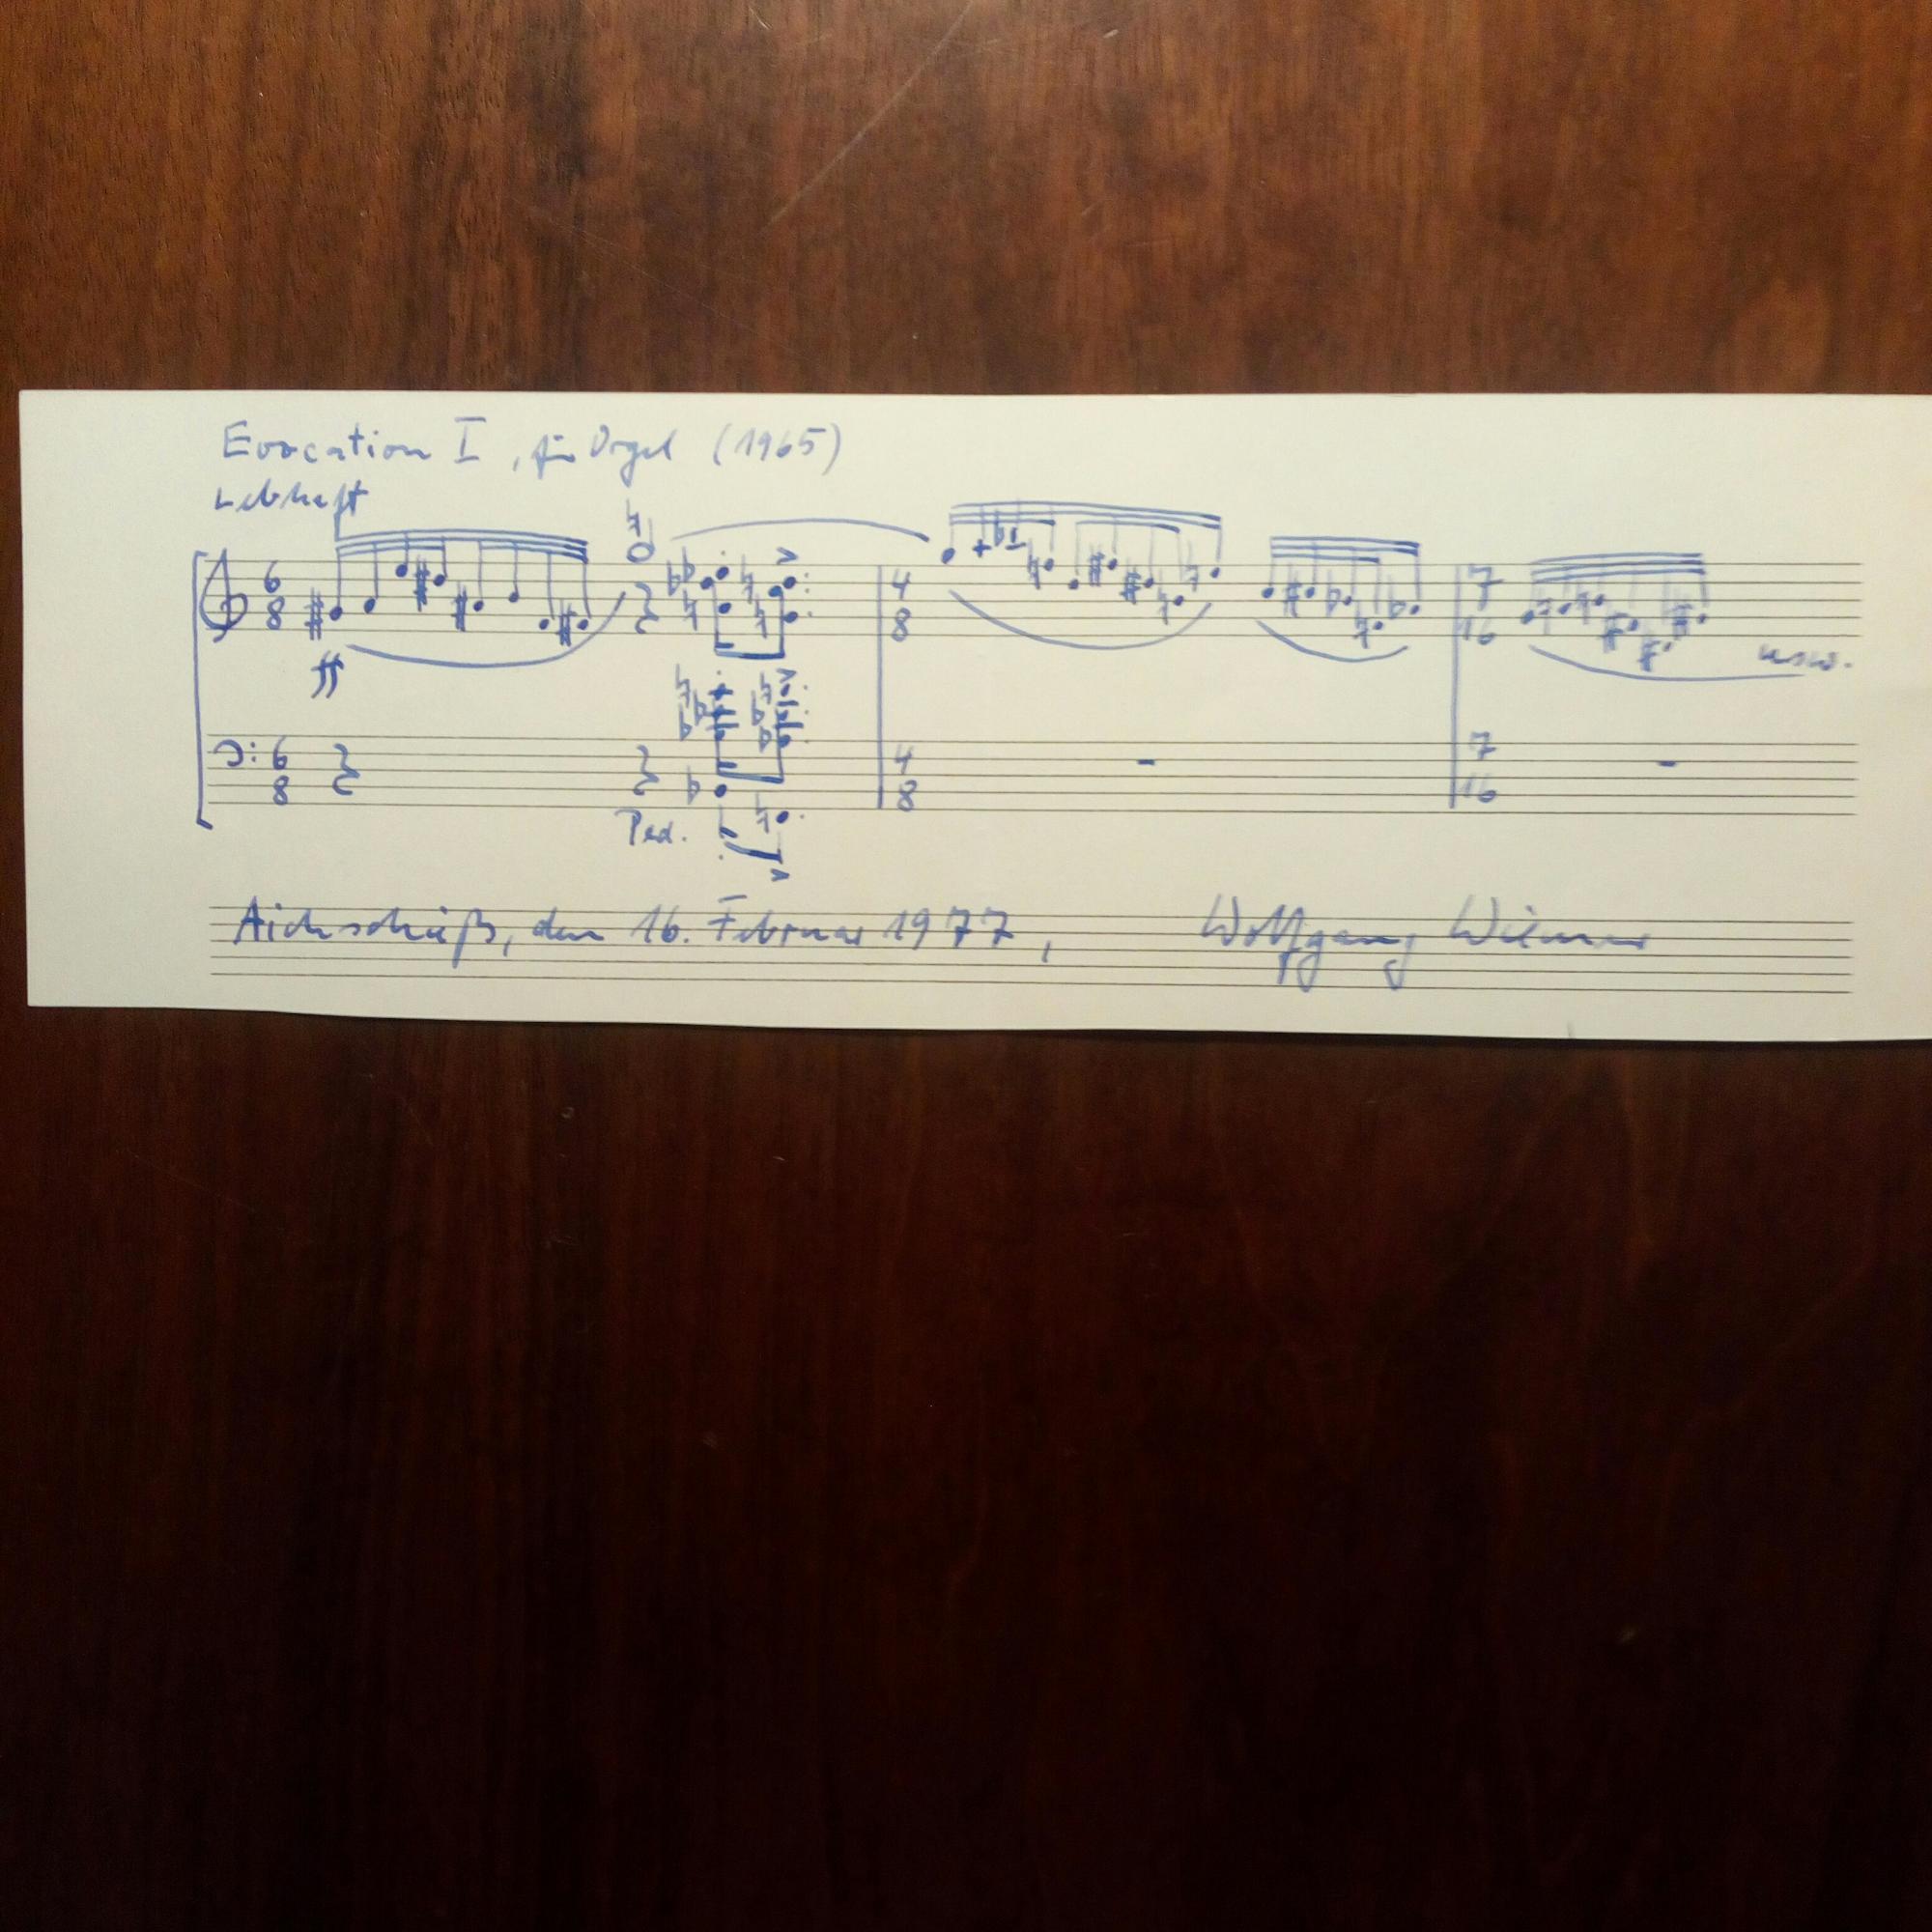 Evocation I, für Orgel (1965)
Lebhaft
6 8 4 8 7 16
ff usw.
6 8 4 8 7 16
Ped.
Aichschieß, den 16. Februar 1977, Wolfgang Wiemer